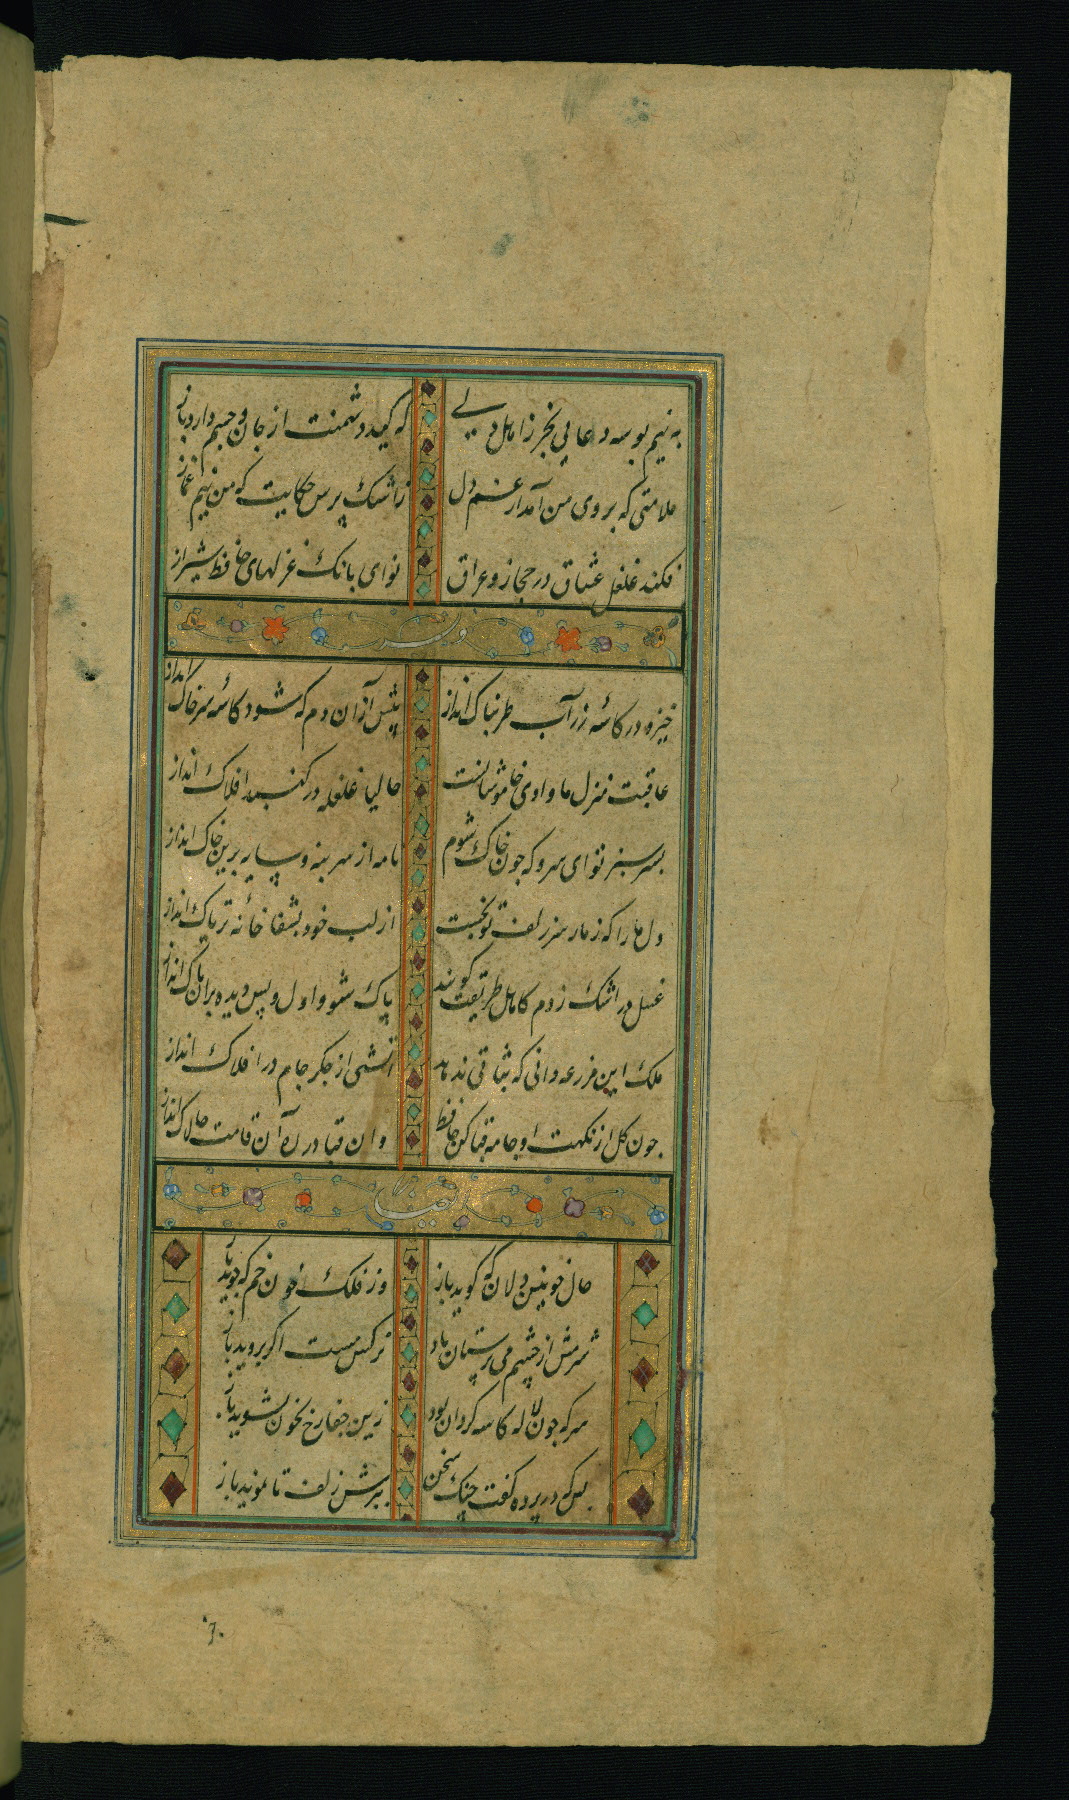 به نیم بوسه دعایی بخر ز اهل دلی
که کید دشمنت از جان و جسم دارد باز
ملامتی که بروی من آمد از غم دل
ز اشک پرس حکایت که من نیم غماز
فکند غلغل عشاق در حجاز و عراق
نوای بانک غزلهای حافظ شیراز
خیز و در کاسه زر آب طربناک انداز
پیش از آن دم که شود کاسه سر خاک انداز
عاقبت منزل ما وادی خاموشانست
حالیا غلغله در کنبد افلاک انداز
بسر سبز تو ای سرو که چون خاک شوم
از سر بنه و سایه برین خاک انداز
دل ما را که ز مار سر زلف تو بخست
از لب خود بشفا خانه تریاک انداز
غسل در اشک زدم کاهل طریقت کویند
پاک شو اول و پس دیده بران پاک انداز
ملک این مزرعه دانی که ثباتی ندهد
آتشی از جکر جام در افلاک انداز
چون کل از نکهت او جامه قبا کن حافظ
وان قبا در ره آن قامت چالاک انداز
حال خونین دلان که کوید باز
وز فلک خون خم که جوید باز
شرمش از چشم می پرستان باد
نرکس مست اکر بروید باز
هر که چون لاله کاسه کردان بود
زین جفا رخ بخون بشوید باز
بس که در پرده کفت چنک سخن
ببرش زلف تا نموید باز